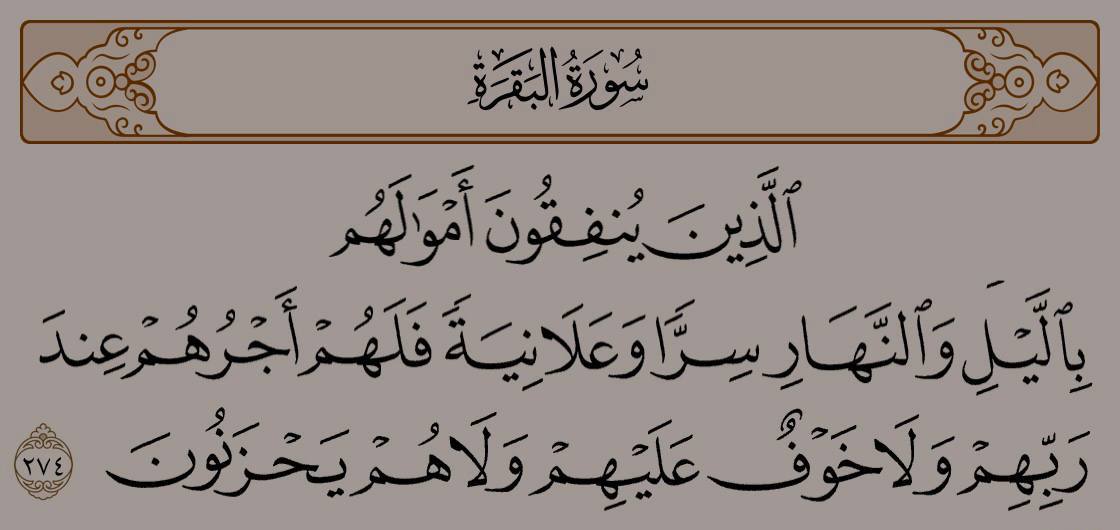 سُورَةُ البَقَرَةِ
ٱلَّذِينَ يُنفِقُونَ أَمْوَٰلَهُم
بِٱلَّيْلِ وَٱلنَّهَارِ سِرًّا وَعَلَانِيَةً فَلَهُمْ أَجْرُهُمْ عِندَ
رَبِّهِمْ وَلَا خَوْفٌ عَلَيْهِمْ وَلَا هُمْ يَحْزَنُونَ ٢٧٤